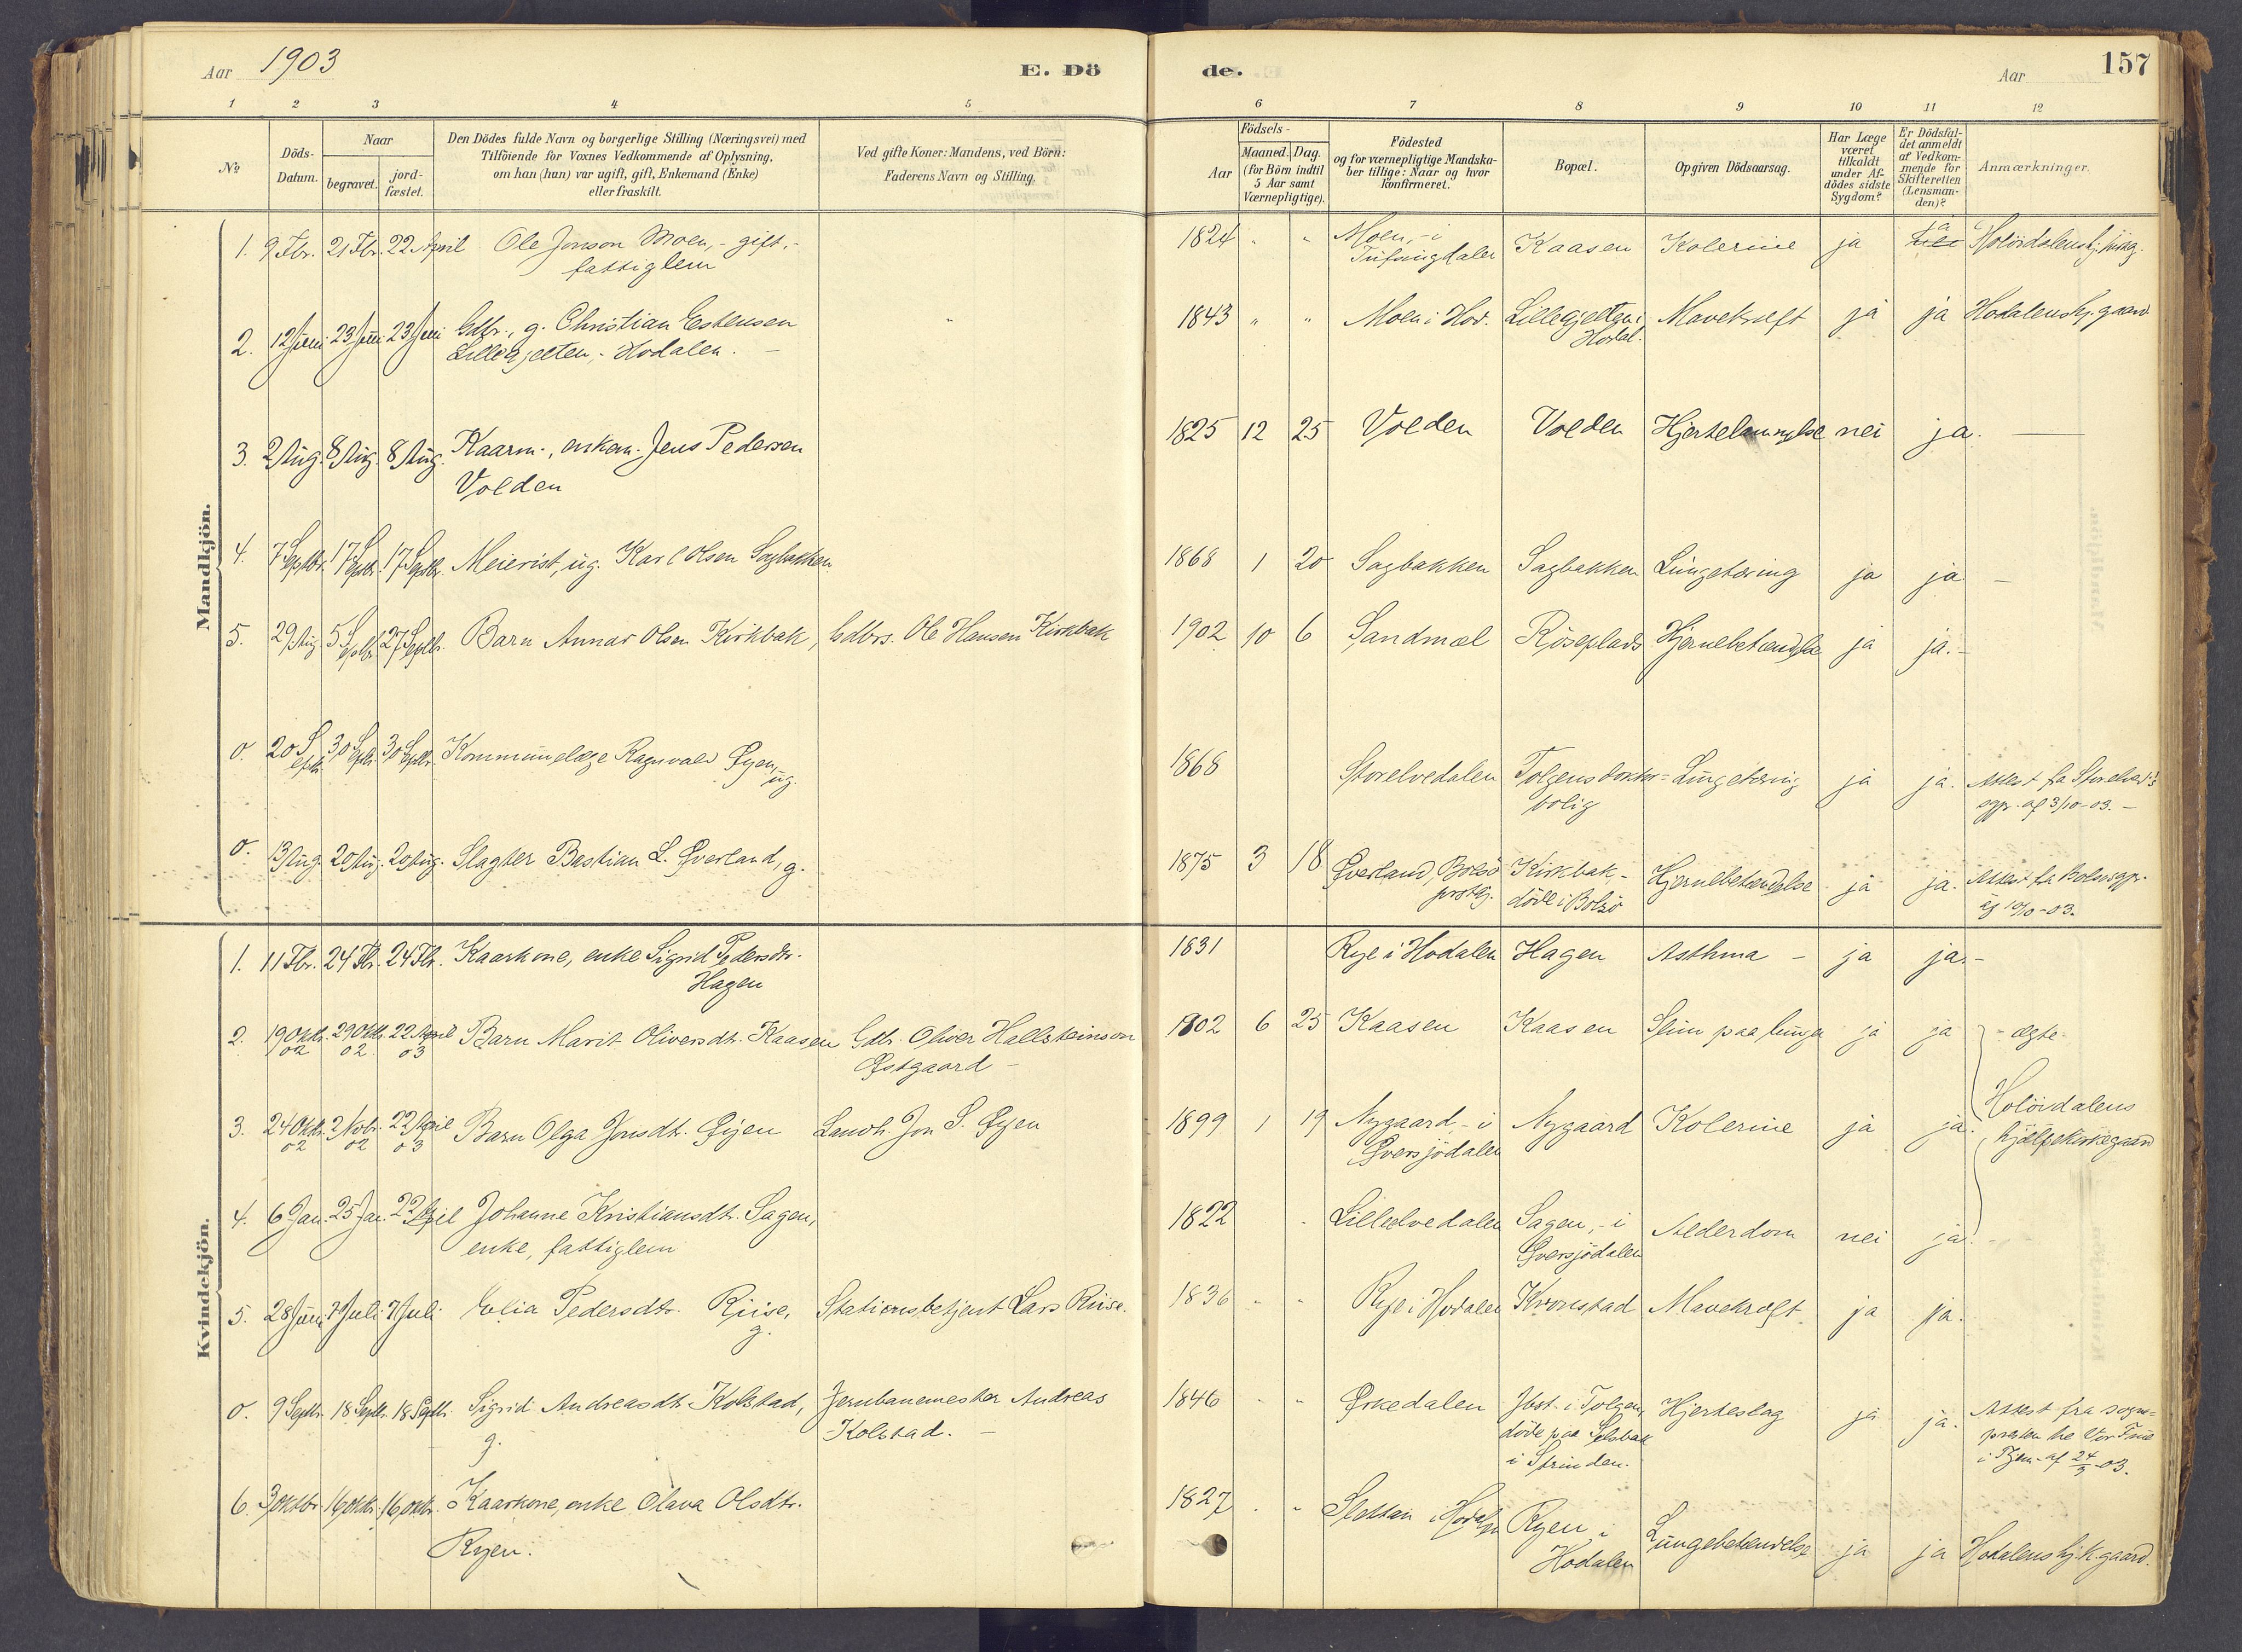 Aar 1903
E. Dö
de.
Aar
157
1 2 3 4 5 6 7 8 9 10 11 12
No
Döds-Datum.
Naar
begravet.
jord-fæstet.
Den Dödes fulde Navn og borgerlige Stilling (Næringsvei) med
Tilföiende for Voxnes Vedkommende af Oplysning,
om han (hun) var ugift, gift, Enkemand (Enke)
eller fraskilt.
Ved gifte Koner: Mandens, ved Börn:
Faderens Navn og Stilling.
Födsels-
Aar
Maaned. Dag.
(for Börn indtil
5 Aar samt
Værnepligtige).
Födested
og for værnepligtige Mandska-
ber tillige: Naar og hvor
konfirmeret.
Bopæl.
Opgiven Dödsaarsag.
Har Læge
været
tilkaldt
under Af-
dödes sidste
Sygdom?
Er Dödsfal-
det anmeldt
af Vedkom-
mende for
Skifteretten
(Lensman-
den)?
Anmærkninger.
Mandkjön.
1. 9 Fbr. 21 Fbr. 22 April Ole Jonson Moen, - gift, -
fattiglem
1824 " " Moen, - i
Tufsingdalen
Kaasen Kolerine ja ja
2. 12 Juni 23 Juni 23 Juni Gdbr., g. Christian Estensen
Lillegjelten, - Hodalen. -
1843 " " Moen i Hod. Lillegjelten i
Hodal.
Mavekræft ja ja Hodalens kj. gaard
3. 2 Aug. 8 Aug. 8 Aug. Kaarm., enkem. Jens Pedersen
Volden
1825 12 25 Volden Volden Hjertelammelse nei ja. —
4. 7 Septbr. 17 Septbr. 17 Septbr. Meierist, ug. Karl Olsen Sagbakken
1868 1 20 Sagbakken Sagbakken Lungetæring ja ja —
5. 29 Aug 5 Septbr. 27 Septbr. Barn Annar Olsen Kirkbak, Gdbrs. Ole Hansen Kirkbak
1902 10 6 Sandmæl Röseplads Hjernebetændelse ja ja. -
0. 20 Septbr. 30 Septbr. 30 Septbr. Kommunelæge Ragnvald Øyen,
ug.
1868 Storelvedalen Tolgens doktor-
bolig
Lungetæring ja ja. Attest fra Storelved.s
sgpr. af 3/10-03. -
0. 13 Aug. 20 Aug. 20 Aug. Slagter Bastian L. Øverland, g.
1875 3 18 Øverland, Bolsö
prstgj.
Kirkbak, -
döde i Bolsö
Hjernebetændelse ja ja. Attest fra Bolsö sgpr.
af 10/10-03.
Kvindekjön.
1. 11 Fbr. 24 Fbr. 24 Fbr. Kaarkone, enke Sigrid Pedersdtr.
Hagen
1831 Rye i Hodalen Hagen Asthma - ja ja. -
2. 19 Oktbr. 02 29 Oktbr. 02 22 April 03 Barn Marit Oliversdtr. Kaasen Gdbr. Oliver Hallsteinson
Østgaard -
1902 6 25 Kaasen Kaasen Slim paa lunge ja ja - ægte.
3. 24 Oktbr. 02 2 Novbr. 02 22 April 03 Barn Olga Jonsdtr. Øyen Landh. Jon S. Øyen
1899 1 19 Nygaard, - i
Øversjödalen
Nygaard Kolerine ja ja. Holöidalens
hjælpekirkegaard
4. 6 Jan. 25 Jan. 22 April Johanne Kristiansdtr. Sagen,
enke, fattiglem
1822 " Lilleelvedalen Sagen, - i
Øversjödalen
Alderdom nei ja.
5. 28 Juni 7 Juli 7 Juli Pedersdtr. Riise,
g.
Stationsbetjent Lars Riise.
1836 " " Rye i Hodalen Kronstad Mavekræft ja ja.
0. 9 Septbr. 18 Septbr. 18 Septbr. Sigrid Andreasdtr. Kolstad,
g.
Jernbanemester Andreas
Kolstad. -
1846 " " Ørkedalen Jbst. i Tolgen,
döde paa Selsbak
i Strinden.
Hjerteslag ja ja. Attest fra sogne-
presten til Vor Frue
i Tjem. af 24/9-03.
6. 3 Oktbr. 16 Oktbr. 16 Oktbr. Kaarkone, enke Olava Olsdtr.
Ryen.
1827 " " Slettan i Hodalen Ryen i
Hodalen
Lungebetændelse ja ja Hodalens hj.k.gaard.